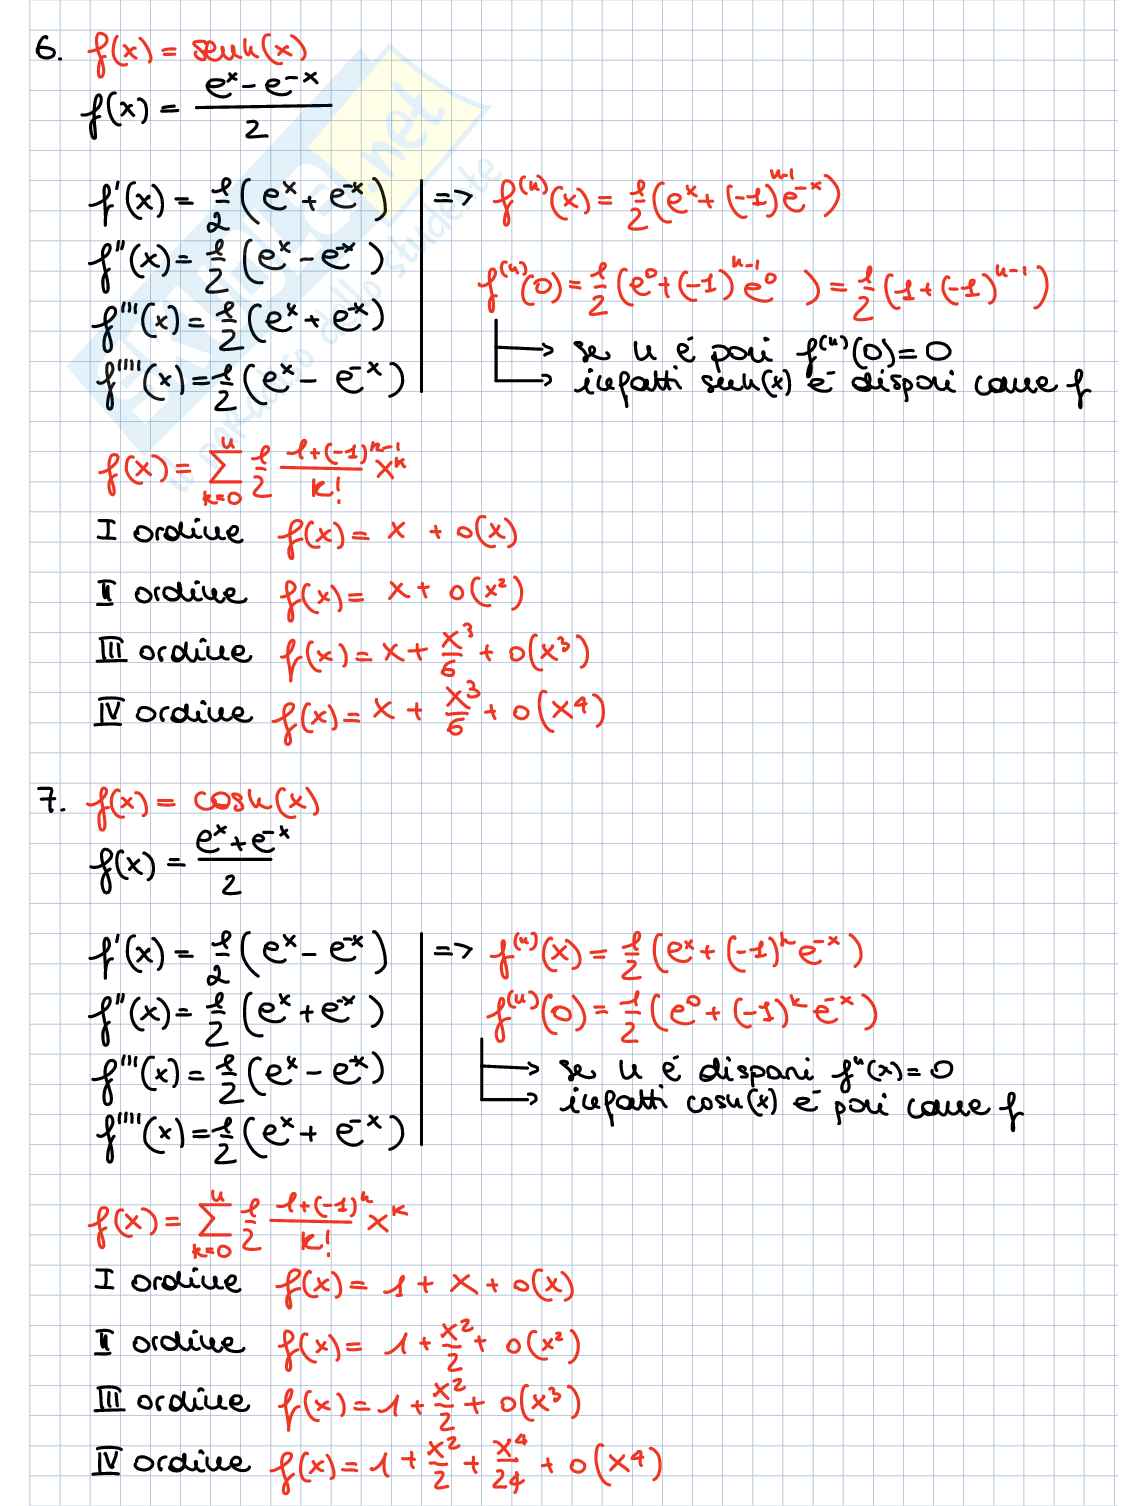 6. f(x) = senh(x)
f(x) = \frac{e^x - e^{-x}}{2}
f'(x) = \frac{1}{2}(e^x + e^{-x}) => f^{(n)}(x) = \frac{1}{2}(e^x + (-1)^{n-1} e^{-x})
f''(x) = \frac{1}{2}(e^x - e^{-x})
f^{(n)}(0) = \frac{1}{2}(e^0 + (-1)^{n-1} e^0) = \frac{1}{2}(1 + (-1)^{n-1})
f'''(x) = \frac{1}{2}(e^x + e^{-x})
→ se n è pari f^{(n)}(0) = 0
f''''(x) = \frac{1}{2}(e^x - e^{-x})
→ infatti senh(x) è dispari come f
f(x) = \sum_{k=0}^{n} \frac{1}{2} \frac{1+(-1)^{n-1}}{k!} x^k
I ordine f(x) = x + o(x)
II ordine f(x) = x + o(x²)
III ordine f(x) = x + \frac{x^3}{6} + o(x³)
IV ordine f(x) = x + \frac{x^3}{6} + o(x⁴)
7. f(x) = cosh(x)
f(x) = \frac{e^x + e^{-x}}{2}
f'(x) = \frac{1}{2}(e^x - e^{-x}) => f^{(n)}(x) = \frac{1}{2}(e^x + (-1)^n e^{-x})
f''(x) = \frac{1}{2}(e^x + e^{-x}) f^{(n)}(0) = \frac{1}{2}(e^0 + (-1)^k e^{-x})
f'''(x) = \frac{1}{2}(e^x - e^{-x})
→ se n è dispari f^n(x) = 0
→ infatti cosh(x) è pari come f
f''''(x) = \frac{1}{2}(e^x + e^{-x})
f(x) = \sum_{k=0}^{n} \frac{1}{2} \frac{1+(-1)^n}{k!} x^k
I ordine f(x) = 1 + x + o(x)
II ordine f(x) = 1 + \frac{x^2}{2} + o(x²)
III ordine f(x) = 1 + \frac{x^2}{2} + o(x³)
IV ordine f(x) = 1 + \frac{x^2}{2} + \frac{x^4}{24} + o(x⁴)